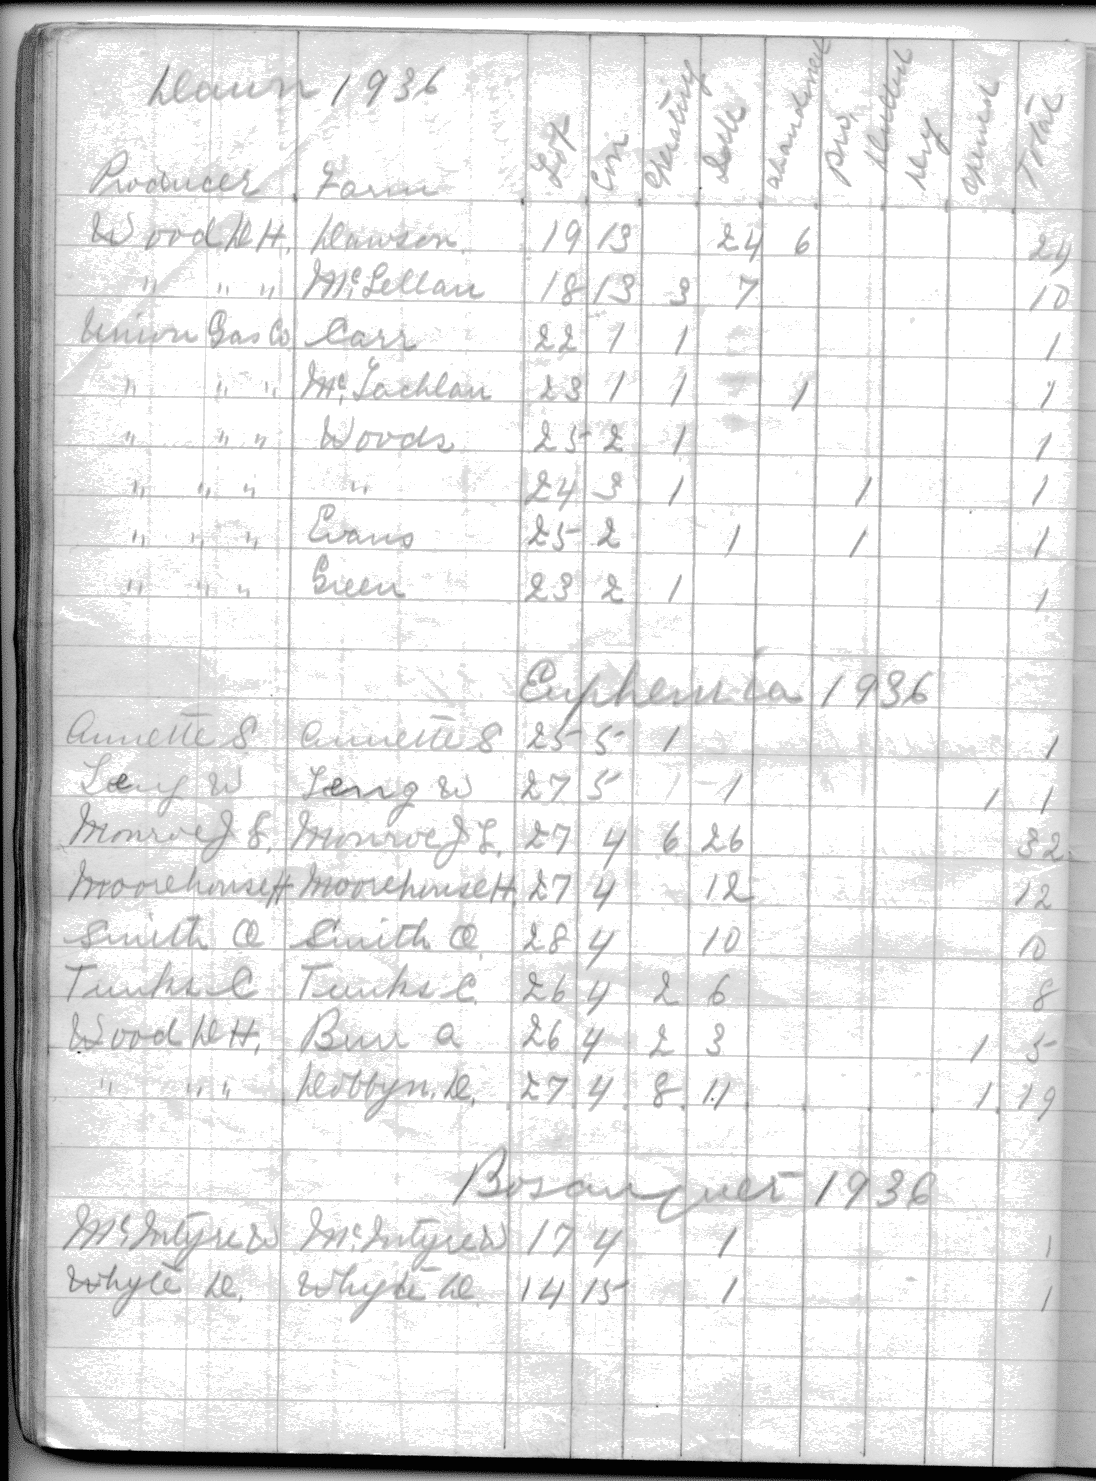 Dawn 1936
Producer Farm Lot Con Operating Idle abandoned priv. drilled dry opened Total
Wood D H. Dawson. 19 13 24 6 24
" " " McLellan 18 13 3 7 10
Union Gas Co Carr 22 1 1 1
" " " McLachlan 23 1 1 1 1
" " " Woods 25 2 1 1
" " " " 24 3 1 1 1
" " " Evans 25 2 1 1 1
" " " Green 23 2 1 1
Euphemia 1936
Annette S Annette S 25 5 1 1
Leng W Leng W 27 5 1 1 1
Monroe J L. Monroe J L. 27 4 6 26 32
Moorehouse H Moorehouse H 27 4 12 12
Smith O Smith O. 28 4 10 10
Tunks C Tunks C. 26 4 2 6 8
Wood D H. Burr A 26 4 2 3 1 5
" " " Dobbyn. D. 27 4 8 11 1 19
Bosanquet 1936
McIntyre W McIntyre W 17 4 1 1
Whyte D. Whyte D. 14 15 1 1